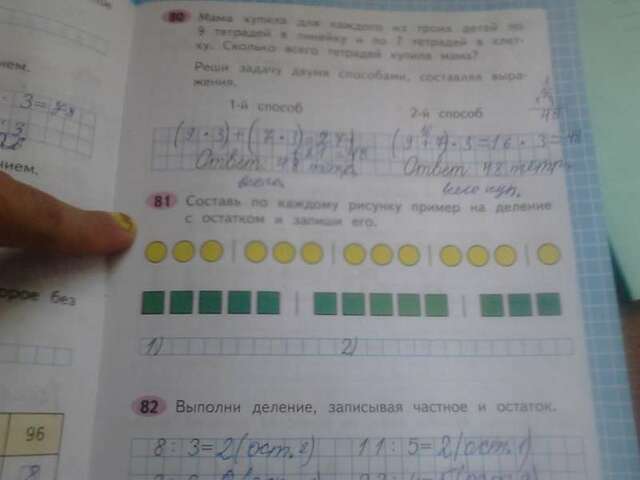 80 Мама купила для каждого из троих детей по
9 тетрадей в линейку и по 7 тетрадей в клет-
ку. Сколько всего тетрадей купила мама?
Реши задачу двумя способами, составляя выра-
жения.
1-й способ 2-й способ
48
(9 · 3) + (7 · 3) = 27 + (9 + 7) · 3 = 16 · 3 = 48
Ответ 48 тетр. Ответ 48 тетр.
всего. всего куп.
нием.
· 3 =
· 3
нием.
81 Составь по каждому рисунку пример на деление
с остатком и запиши его.
орое без
1) 2)
82 Выполни деление, записывая частное и остаток.
96
8 : 3 = 2 (ост. 2) 11 : 5 = 2 (ост. 1)
8